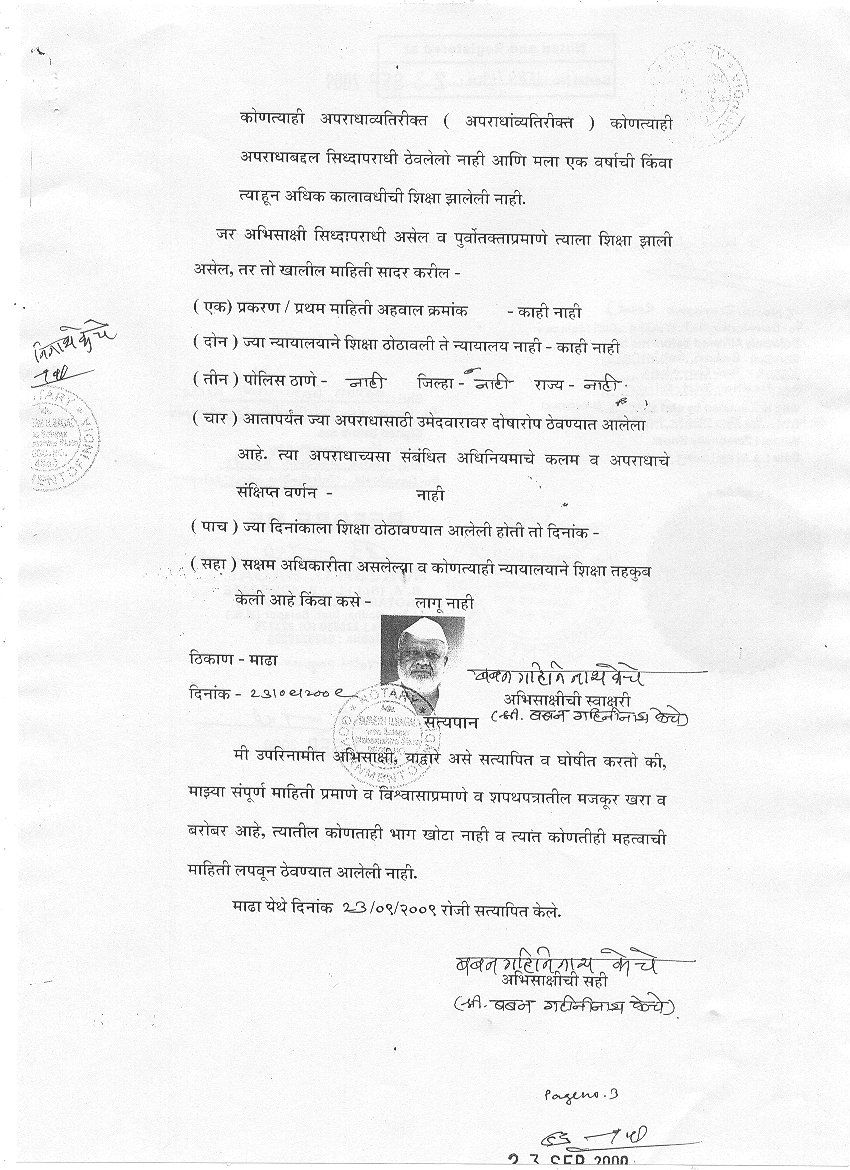 कोणत्याही अपराधाव्यतिरीक्त ( अपराधांव्यतिरीक्त ) कोणत्याही
अपराधाबद्दल सिध्दापराधी ठेवलेलो नाही आणि मला एक वर्षाची किंवा
त्याहून अधिक कालावधीची शिक्षा झालेली नाही.
जर अभिसाक्षी सिध्दापराधी असेल व पुर्वोतक्ताप्रमाणे त्याला शिक्षा झाली
असेल, तर तो खालील माहिती सादर करील -
( एक) प्रकरण / प्रथम माहिती अहवाल क्रमांक - काही नाही
( दोन ) ज्या न्यायालयाने शिक्षा ठोठावली ते न्यायालय नाही - काही नाही
( तीन ) पोलिस ठाणे - नाही जिल्हा - नाही राज्य - नाही.
( चार ) आतापर्यंत ज्या अपराधासाठी उमेदवारावर दोषारोप ठेवण्यात आलेला
आहे. त्या अपराधाच्यसा संबंधित अधिनियमाचे कलम व अपराधाचे
संक्षिप्त वर्णन - नाही
( पाच ) ज्या दिनांकाला शिक्षा ठोठावण्यात आलेली होती तो दिनांक -
( सहा ) सक्षम अधिकारीता असलेल्या व कोणत्याही न्यायालयाने शिक्षा तहकुब
केली आहे किंवा कसे - लागू नाही
ठिकाण - माढा
बबन गहिनिनाथ केचे
दिनांक - २३।०९।२००९
अभिसाक्षीची स्वाक्षरी
NOTARY
सत्यपान (श्री. बबन गहिनीनाथ केचे)
मी उपरिनामीत अभिसाक्षी, याद्वारे असे सत्यापित व घोषीत करतो की,
माझ्या संपूर्ण माहिती प्रमाणे व विश्वासाप्रमाणे व शपथपत्रातील मजकूर खरा व
बरोबर आहे, त्यातील कोणताही भाग खोटा नाही व त्यात कोणतीही महत्वाची
माहिती लपवून ठेवण्यात आलेली नाही.
माढा येथे दिनांक २३/०९/२००९ रोजी सत्यापित केले.
बबन गहिनिनाथ केचे
अभिसाक्षीची सही
(श्री. बबन गहीनीनाथ केचे)
Page no. 3
23 SEP 2009